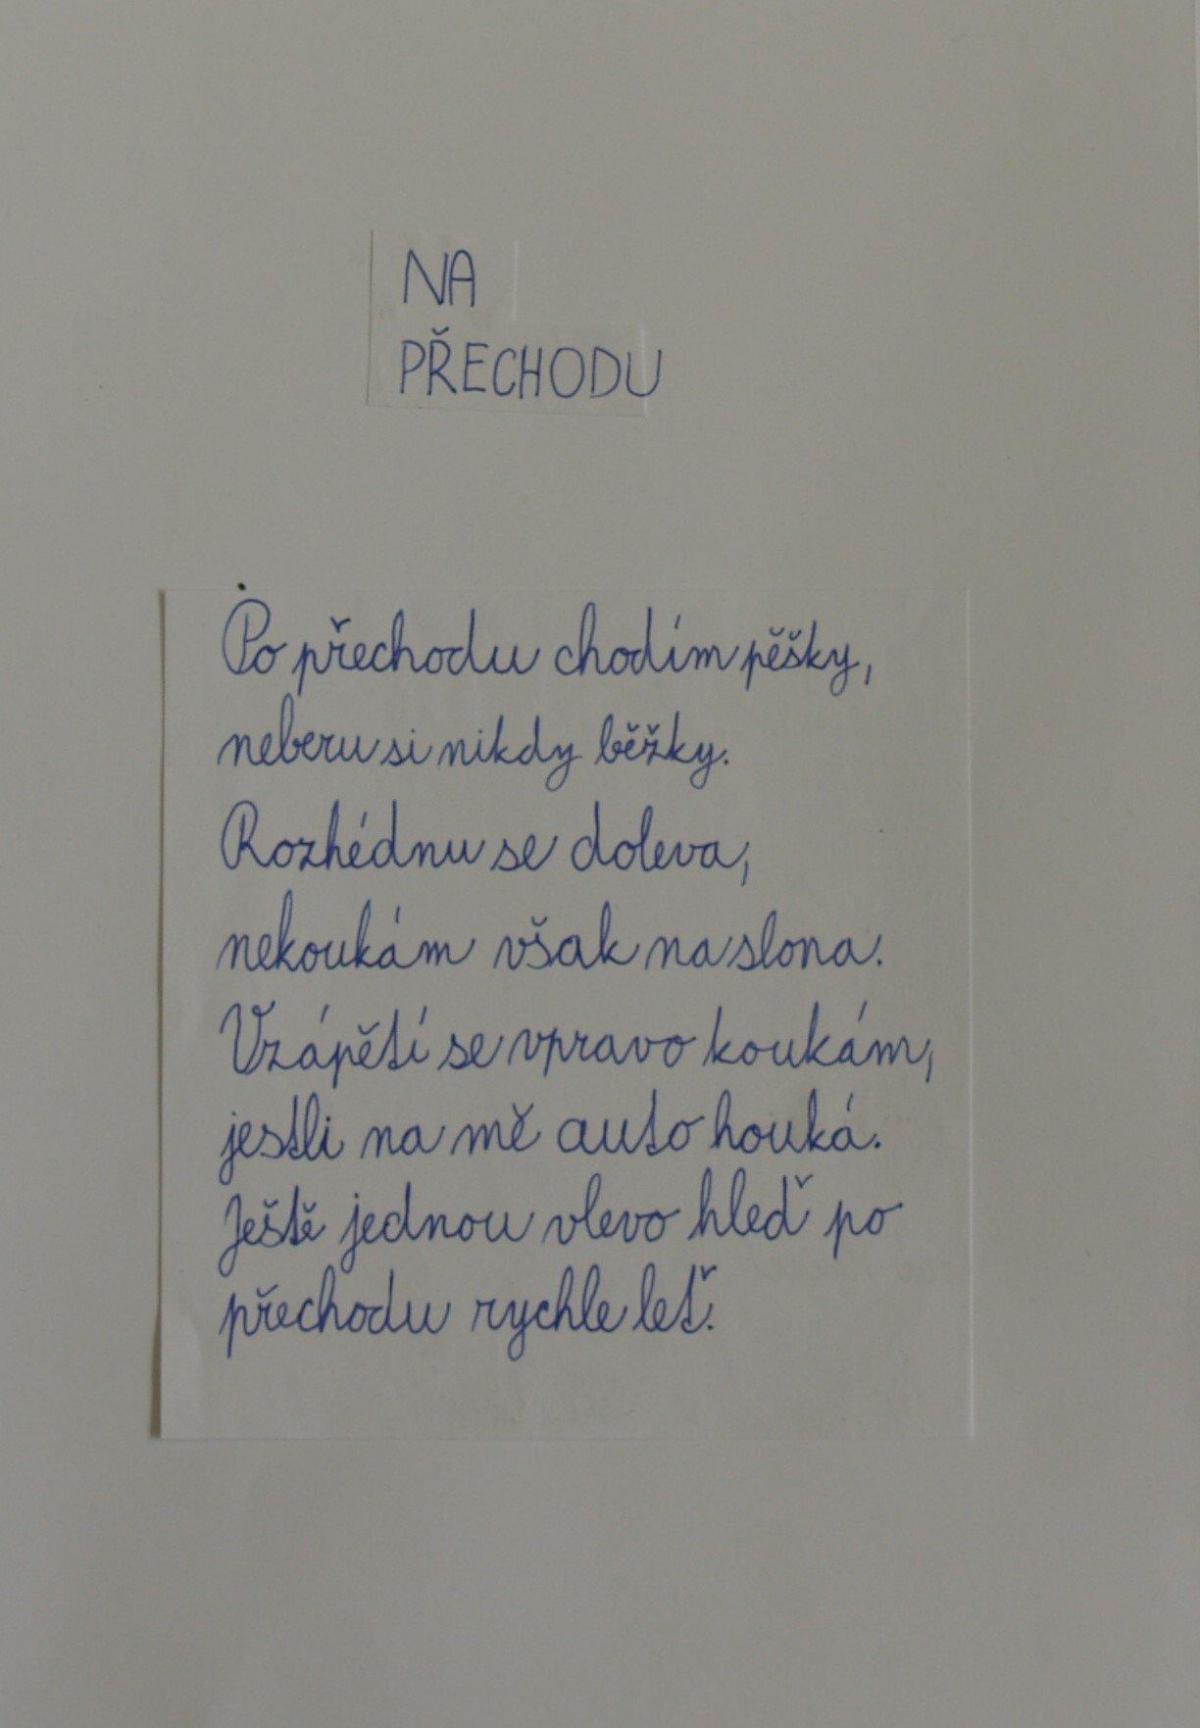 NA
PŘECHODU
Po přechodu chodím pěšky,
neberu si nikdy běžky.
Rozhédnu se doleva,
nekoukám však na slona.
Vzápětí se vpravo koukám,
jestli na mě auto houká.
Ještě jednou vlevo hleď po
přechodu rychle leť.